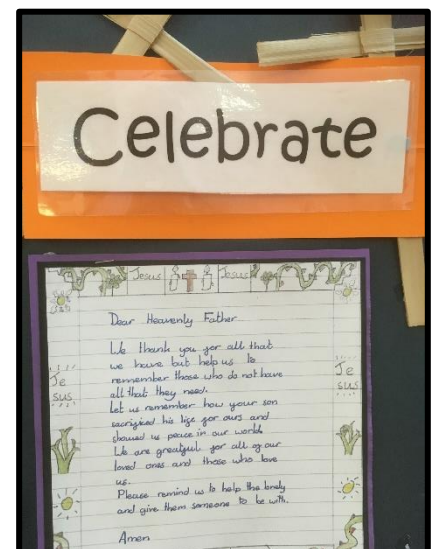 Celebrate
Jesus
Jesus
Dear Heavenly Father
We thank you for all that
we have but help us to
remember those who do not have
all that they need.
Let us remember how your son
sacrificed his life for ours and
showed us peace in our world.
We are greatful for all of our
loved ones and those who love
us.
Please remind us to help the lonely
and give them someone to be with.
Amen
Je
sus
Je
sus